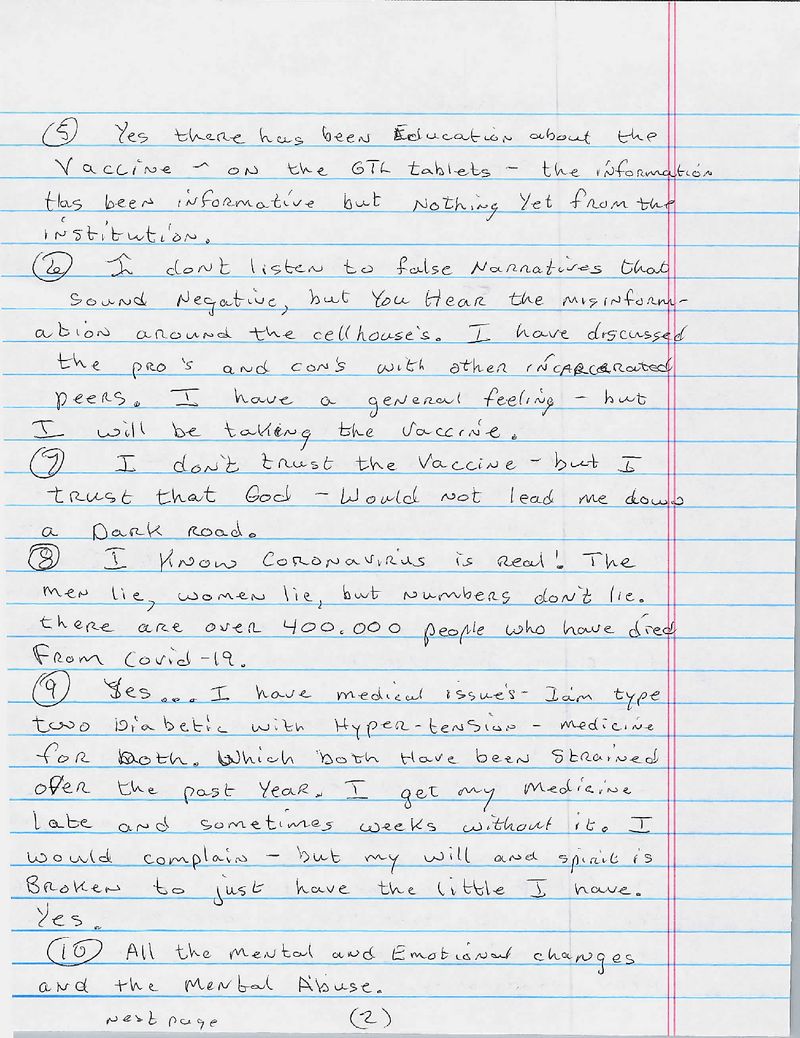 (5) Yes there has been Education about the
Vaccine - on the GTL tablets - the information
Has been informative but Nothing Yet from the
institution.
(6) I don't listen to false Narratives that
Sound Negative, but You Hear the misinform-
ation around the cellhouse's. I have discussed
the pro's and con's with other incarcerated
peers. I have a general feeling - but
I will be taking the Vaccine.
(7) I don't trust the Vaccine - but I
trust that God - Would not lead me down
a Dark road.
(8) I Know Coronavirus is real! The
men lie, women lie, but numbers don't lie.
there are over 400.000 people who have died
From Covid-19.
(9) Yes... I have medical issue's - Iam type
two Diabetic with Hyper-tension - medicine
for Both. Which both Have been Strained
over the past Year. I get my Medicine
late and sometimes weeks without it. I
would complain - but my will and spirit is
Broken to just have the little I have.
Yes.
(10) All the Mental and Emotional changes
and the Mental Abuse.
Next page (2)